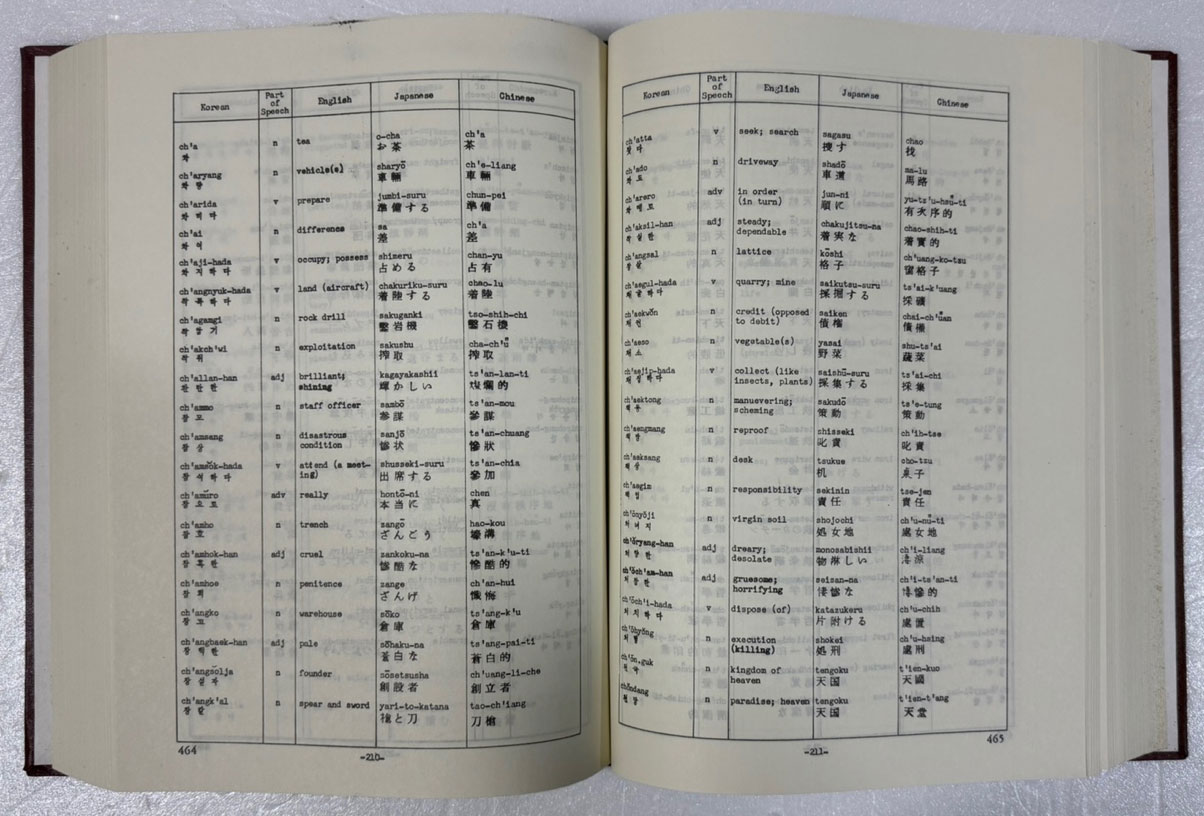 Korean Part of Speech English Japanese Chinese
ch'a n tea o-cha ch'a
차 お茶 茶
ch'aryang n vehicle(s) sharyō ch'e-liang
차량 車輛 車輛
ch'arida v prepare jumbi-suru chun-pei
차리다 準備する 準備
ch'ai n difference sa ch'a
차이 差 差
ch'aji-hada v occupy; possess shimeru chan-yu
차지하다 占める 占有
ch'angnyuk-hada v land (aircraft) chakuriku-suru chao-lu
착륙하다 着陸する 着陸
ch'agamgi n rock drill sakuganki tso-shih-chi
착암기 鑿岩機 鑿石機
ch'akch'wi n exploitation sakushu cha-ch'ü
착취 搾取 搾取
ch'allan-han adj brilliant; kagayakashii ts'an-lan-ti
찬란한 shining 輝かしい 燦爛的
ch'ammo n staff officer sambō ts'an-mou
참모 参謀 參謀
ch'amsang n disastrous sanjō ts'an-chuang
참상 condition 惨状 慘狀
ch'amsŏk-hada v attend (a meet- shusseki-suru ts'an-chia
참석하다 ing) 出席する 參加
ch'amŭro adv really hontō-ni chen
참으로 本当に 真
ch'amho n trench zangō hao-kou
참호 ざんごう 壕溝
ch'amhok-han adj cruel zankoku-na ts'an-k'u-ti
참혹한 惨酷な 慘酷的
ch'amhoe n penitence zange ch'an-hui
참회 ざんげ 懺悔
ch'angko n warehouse sōko ts'ang-k'u
창고 倉庫 倉庫
ch'angbaek-han adj pale sōhaku-na ts'ang-pai-ti
창백한 蒼白な 蒼白的
ch'angsŏlja n founder sōsetsusha ch'uang-li-che
창설자 創設者 創立者
ch'angk'al n spear and sword yari-to-katana tao-ch'iang
창칼 槍と刀 刀槍
464
-210-
Korean Part of Speech English Japanese Chinese
ch'atta v seek; search sagasu chao
찾다 捜す 找
ch'ado n driveway shadō ma-lu
차도 車道 馬路
ch'arero adv in order jun-ni yu-ts'u-hsü-ti
차례로 (in turn) 順に 有次序的
ch'aksil-han adj steady; chakujitsu-na chao-shih-ti
착실한 dependable 着実な 着實的
ch'angsal n lattice kōshi ch'uang-ko-tzu
창살 格子 窗格子
ch'aegul-hada v quarry; mine saikutsu-suru ts'ai-k'uang
채굴하다 採掘する 採礦
ch'aekwŏn n credit (opposed saiken chai-ch'üan
채권 to debit) 債権 債權
ch'aeso n vegetable(s) yasai shu-ts'ai
채소 野菜 蔬菜
ch'aejip-hada v collect (like saishū-suru ts'ai-chi
채집하다 insects, plants) 採集する 採集
ch'aektong n manuevering; sakudō ts'e-tung
책동 scheming 策動 策動
ch'aengmang n reproof shisseki ch'ih-tse
책망 叱責 叱責
ch'aeksang n desk tsukue cho-tzu
책상 机 桌子
ch'aegim n responsibility sekinin tse-jen
책임 責任 責任
ch'ŏnyŏji n virgin soil shojochi ch'u-nü-ti
처녀지 処女地 處女地
ch'ŏryang-han adj dreary; monosabishii ch'i-liang
처량한 desolate 物淋しい 凄涼
ch'ŏch'am-han adj gruesome; seizan-na ch'i-ts'an-ti
처참한 horrifying 凄惨な 凄慘的
ch'ŏch'i-hada v dispose (of) katazukeru ch'u-chih
처치하다 片附ける 處置
ch'ŏhyŏng n execution shokei ch'u-hsing
처형 (killing) 処刑 處刑
ch'ŏn.guk n kingdom of tengoku t'ien-kuo
천국 heaven 天国 天國
chŏndang n paradise; heaven tengoku t'ien-t'ang
천당 天国 天堂
465
-211-